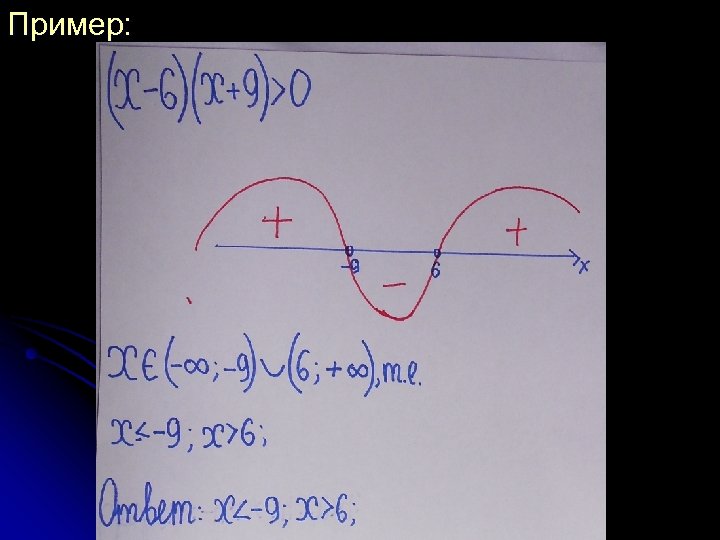 Пример:
(x-6)(x+9)>0
+ +
-9 - 6 x
x∈(-∞;-9)∪(6;+∞),т.е.
x≤-9; x>6;
Ответ: x<-9; x>6;